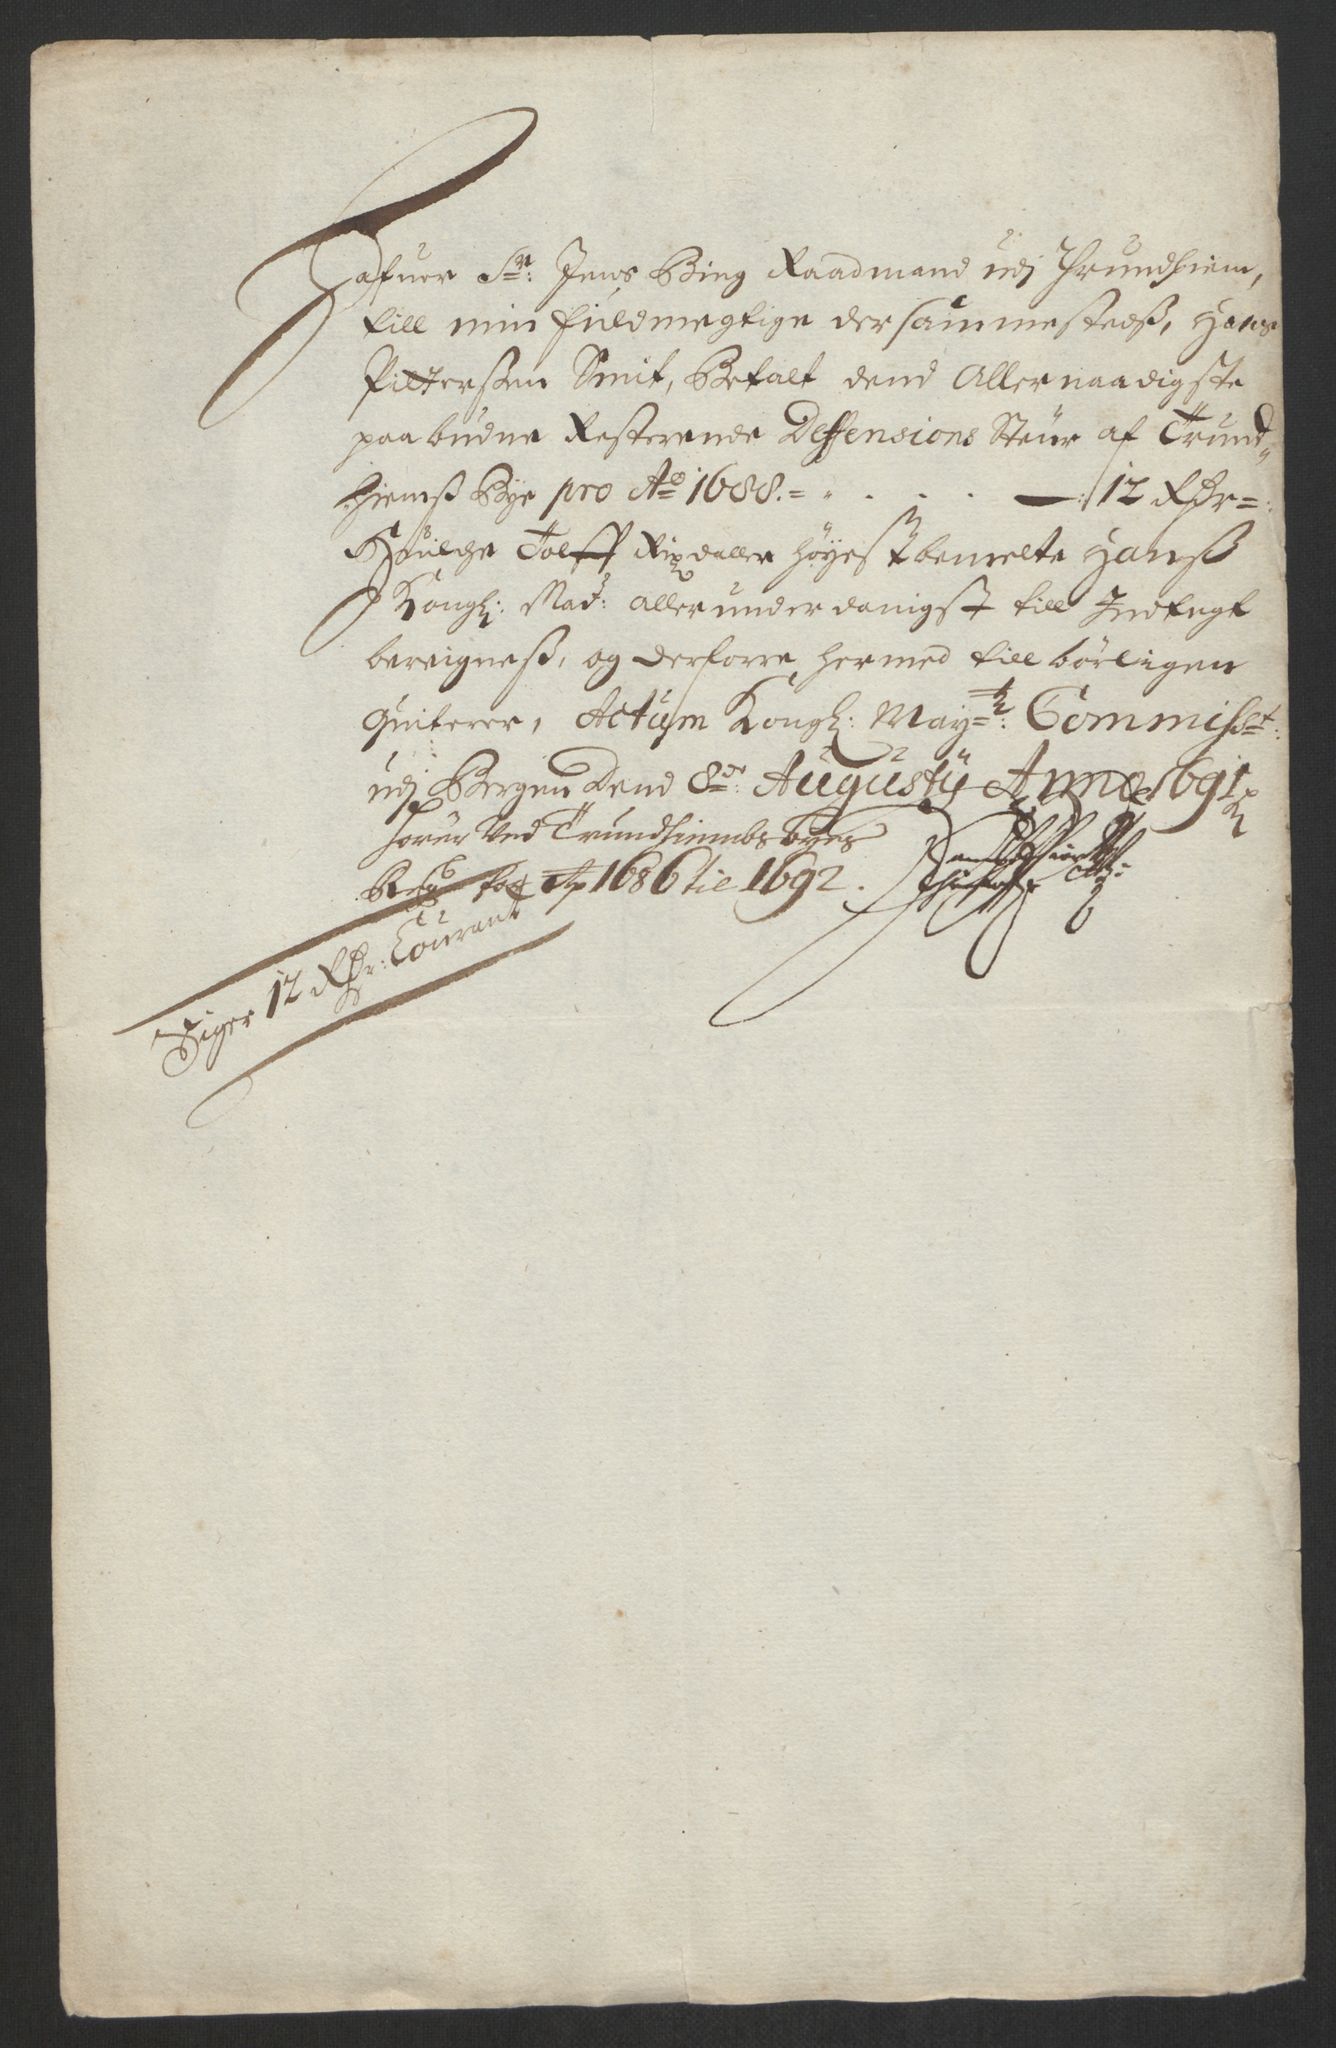 Hafuer Sr: Jens Bing Raadmand udj Thrundhiem,
till min fuldmegtige dersammesteds, Hans
Pitterßen Smit, Betalt dend Allernaadigste
paabudne Resterende Deffensions Steur af Trund-
hiemß Bye pro Ao 1688.= . . . . — 12 Rdr=
Huilche Tolff Rixdaller höyestbemelte Hanß
Kongl: May: allerunderdanigst till Indtegt
bereigneß, og derforre hermed tillbörligen
Quiterer, Actum Kongl: Mayts: Commisst:
udj Bergen Dend 8de: Augustij Anno 1691
hörer Ved Trundhiembs Byes
Regb for Ao 1686 til 1692.
Siger 12 Rdr: Courant